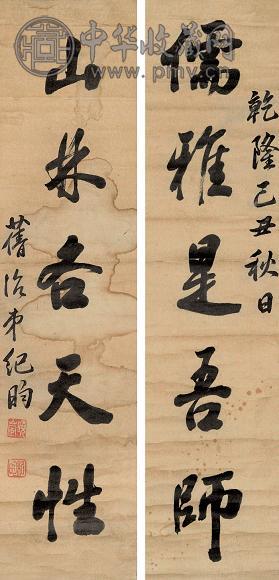 乾隆己丑秋日
儒雅是吾師
山林各天性
舊治弟紀昀
中华收藏网
www.pmv.cn